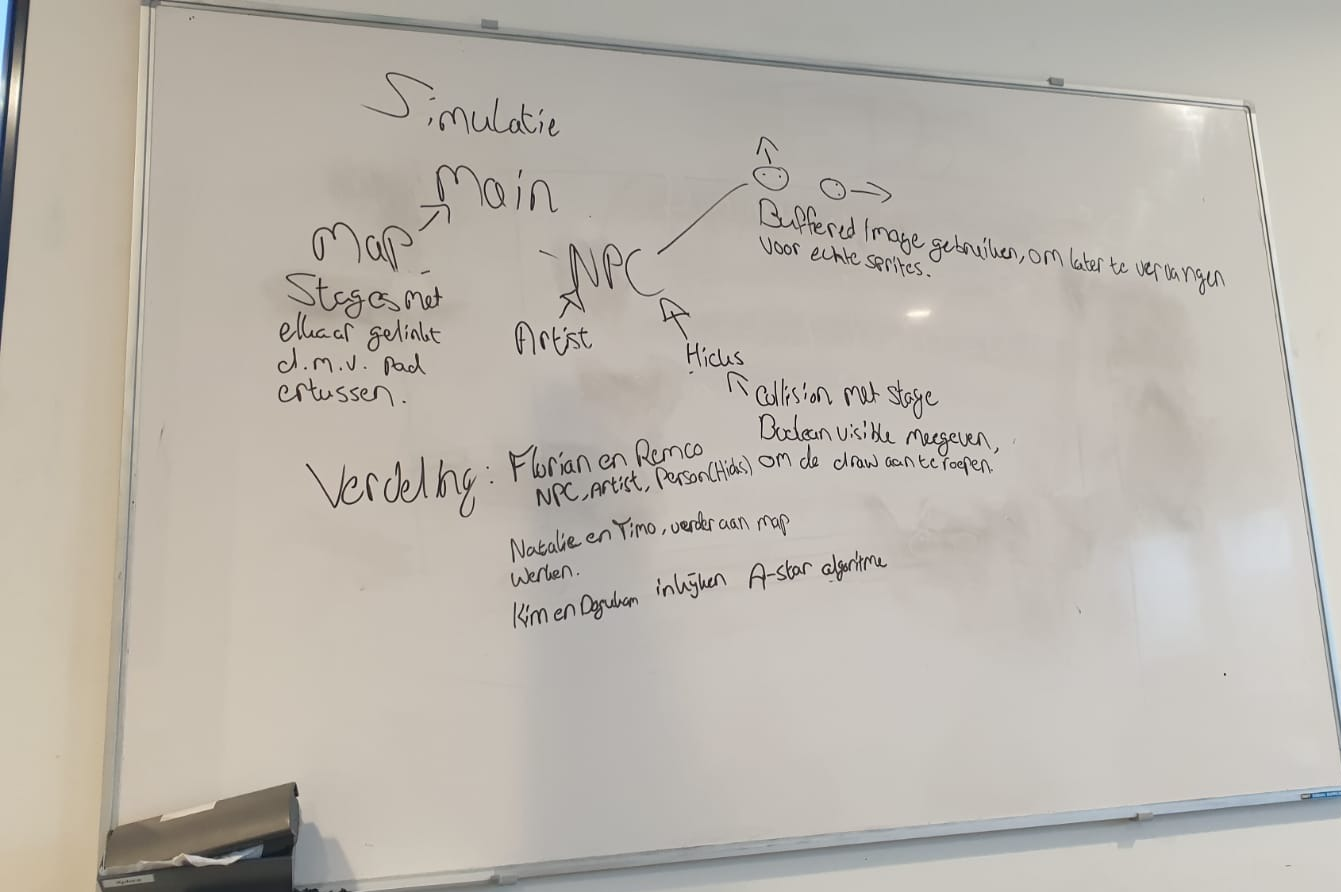 Simulatie
Main
Map
Stages met
elkaar gelinkt
d.m.v. pad
ertussen.
NPC
Artist
Hicks
Buffered Image gebruiken, om later te vervangen
voor echte sprites.
Collision met stage
Boolean visible meegeven,
om de draw aan te roepen.
Verdeling: Florian en Remco
NPC, Artist, Person(Hicks)
Natalie en Timo, verder aan map
werken.
Kim en inkijken A-star algoritme